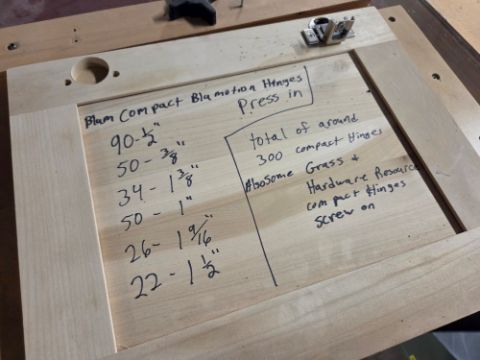 Blum Compact Blumotion Hinges
Press in
90 - 1/2"
50 - 3/8"
34 - 1 3/8"
50 - 1"
26 - 1 9/16"
22 - 1 1/2"
total of around
300 compact Hinges
Also some Grass &
Hardware Resource
compact Hinges
screw on